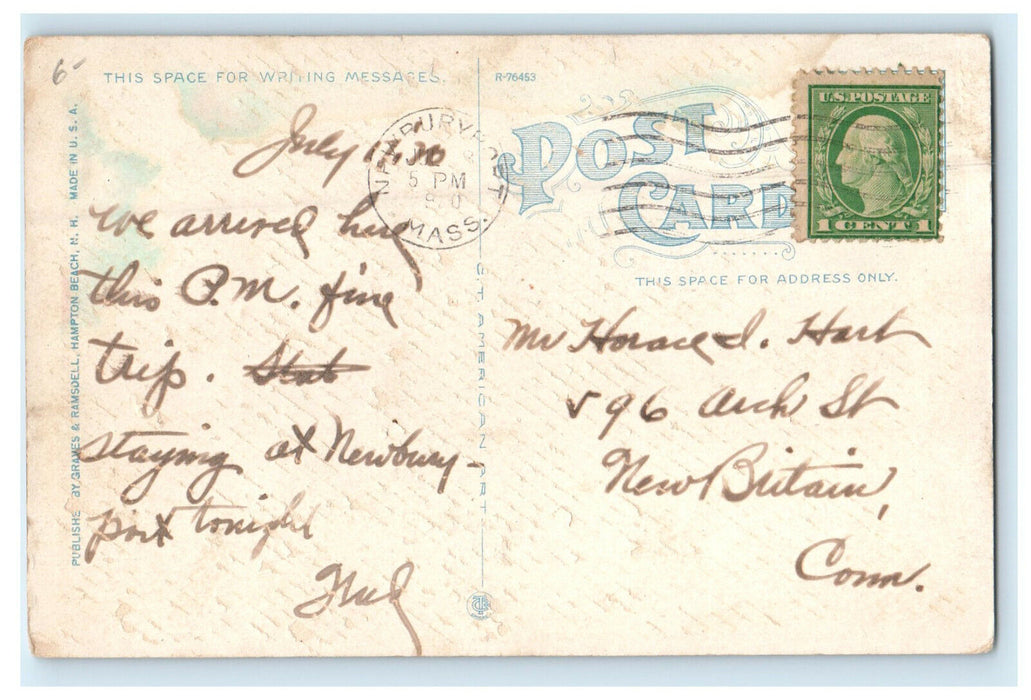 6-
THIS SPACE FOR WRITING MESSAGES.
R-76453
POST
CARD
U.S. POSTAGE
1 CENT 1
THIS SPACE FOR ADDRESS ONLY.
PUBLISHED BY GRAVES & RAMSDELL, HAMPTON BEACH, N. H. MADE IN U. S. A.
C. T. AMERICAN ART
NEWBURYPORT
5 PM
MASS.
July
We arrived here
this P.M. fine
trip.
staying at Newbury-
port tonight
Mr Horace I. Hart
596 Arch St
New Britain,
Conn.